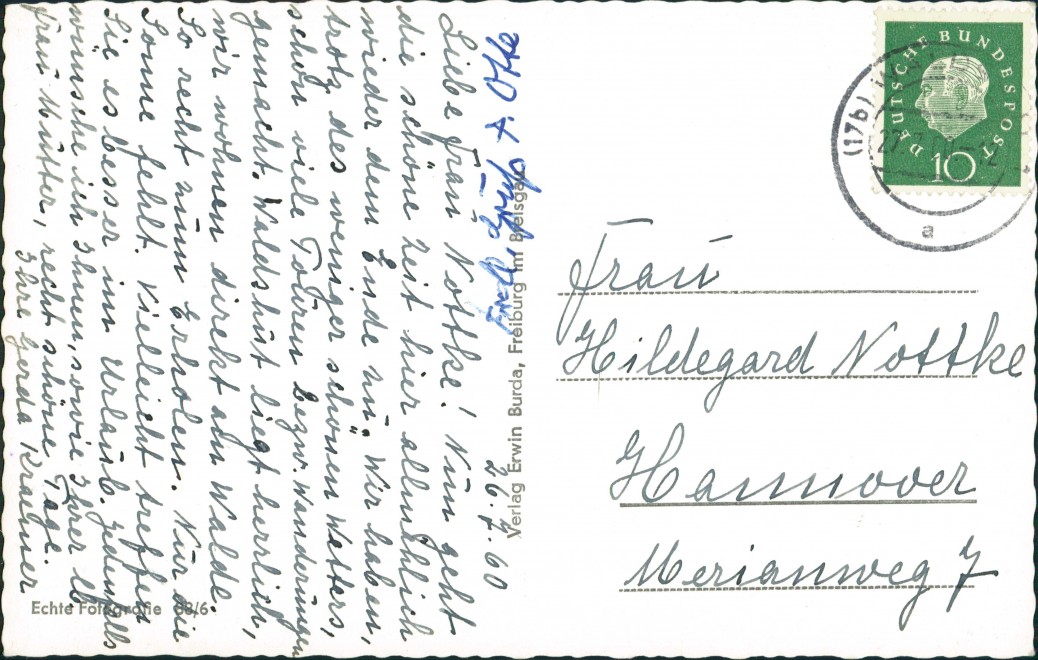 26.7.60
Liebe Frau Nottke! Nun geht
die schöne Zeit hier allmählich
wieder dem Ende zu. Wir haben,
trotz des weniger schönen Wetters,
schon viele Touren bezw. Wanderungen
gemacht. Waldshut liegt herrlich,
wir wohnen direkt am Walde.
So recht zum Erholen. Nur die
Sonne fehlt. Vielleicht treffen
Sie es besser im Urlaub. Jedenfalls
wünsche ich Ihnen, sowie Ihrer lb
Frau Mutter, recht schöne Tage.
Ihre Gerda Kraemer
Frdl. Grüße A. Otte
Verlag Erwin Burda, Freiburg im Breisgau
Echte Fotografie 88/6
DEUTSCHE BUNDESPOST
10
(17b)
27.7.
a
Frau
Hildegard Nottke
Hannover
Merianweg 7